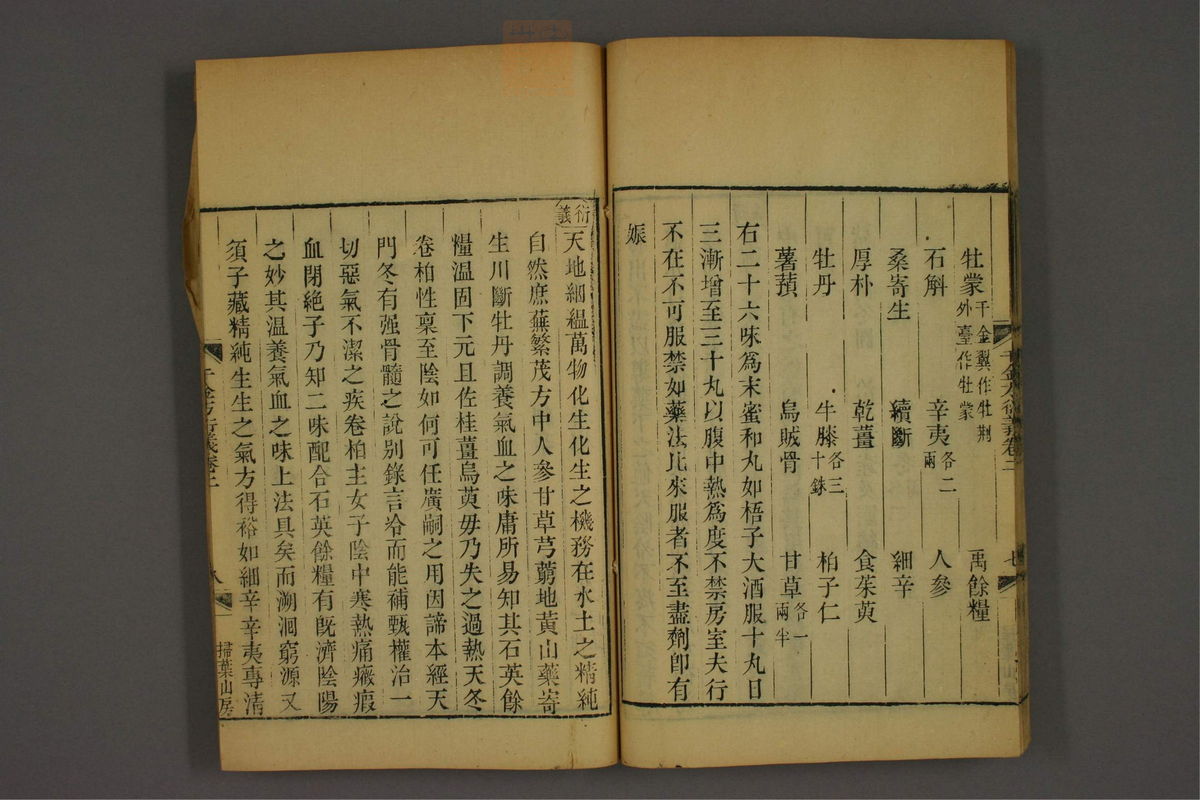 牡蒙千金翼作牡荆外臺作牡蒙　禹餘糧
石斛　辛夷各二兩　人參
桑寄生　續斷　細辛
厚朴　乾薑　食茱萸
牡丹　牛膝各三十銖　柏子仁
薯蕷　烏賊骨　甘草各一兩半
右二十六味為末蜜和丸如梧子大酒服十丸日
三漸增至三十丸以腹中熱為度不禁房室夫行
不在不可服禁如藥法比來服者不至盡劑卽有
娠
衍義天地絪縕萬物化生化生之機務在水土之精純
自然庶蕪繁茂方中人參甘草芎藭地黃山藥寄
生川斷牡丹調養氣血之味庸所易知其石英餘
糧溫固下元且佐桂薑烏萸毋乃失之過熱天冬
卷柏性稟至陰如何可任廣嗣之用因諦本經天
門冬有强骨髓之說別錄言冷而能補甄權治一
切惡氣不潔之疾卷柏主女子陰中寒熱痛癥瘕
血閉絕子乃知二味配合石英餘糧有旣濟陰陽
之妙其溫養氣血之味上法具矣而溯洄窮源又
須子藏精純生生之氣方得裕如細辛辛夷專清
千金方衍義卷二　八　掃葉山房